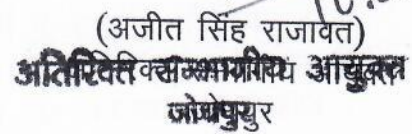 (अजीत सिंह राजावत)
अतिरिक्त संभागीय आयुक्त
जोधपुर